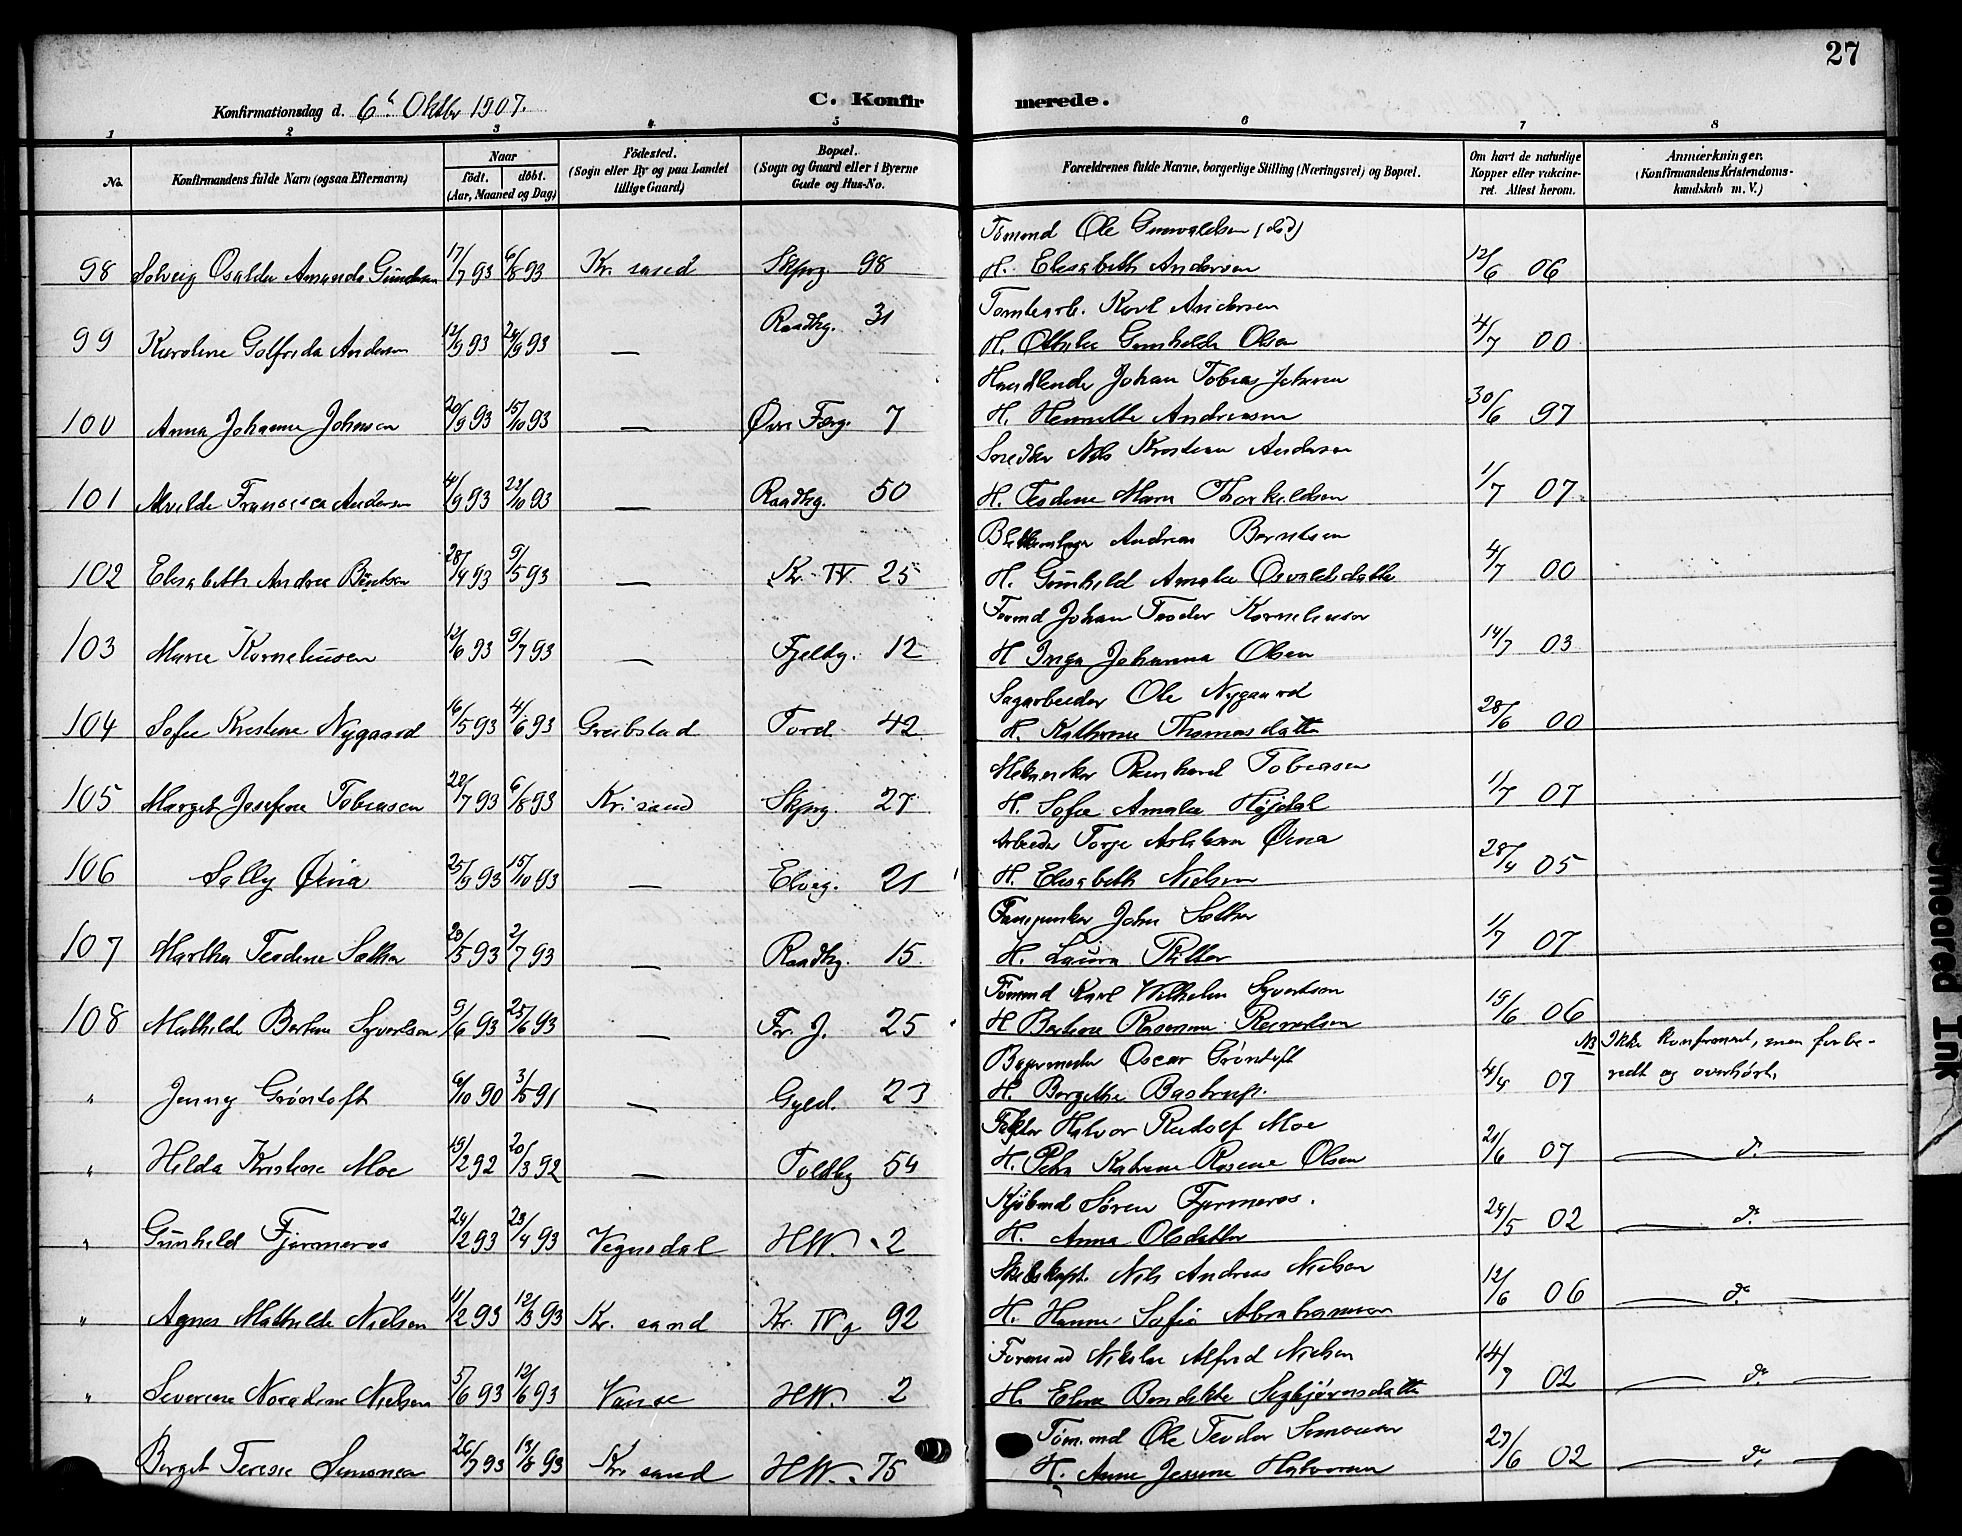 27
Konfirmationsdag d. 6te Oktbr 1907.
C. Konfirmerede.
1 2 3 4 5 6 7 8
No. Konfirmandens fulde Navn (ogsaa Efternavn) Naar født. døbt. (Aar, Maaned og Dag) Fødested. (Sogn eller By og paa Landet tillige Gaard) Bopæl. (Sogn og Gaard eller i Byerne Gade og Hus-No. Forældrenes fulde Navne, borgerlige Stilling (Næringsvei) og Bopæl. Om havt de naturlige Kopper eller vaccineret. Attest herom. Anmærkninger. (Konfirmandens Kristendomskundskab m. V.)
Tømmd Ole Gunvaldsen (død)
98 Solveig Osvalda Amanda Gundersen 17/7 93 6/8 93 Kr. sand Skprg. 98 H. Elisabeth Andersen 12/6 06
Tomtearb. Karl Andersen
99 Karoline Golfrida Andersen 12/9 93 24/9 93 — Raadhg. 31 H. Othilie Gunhilde Olsen 4/7 00
Handlende Johan Tobias Johnsen
100 Anna Johanne Johnsen 20/9 93 15/10 93 — Øvre Færg. 7 H. Henriette Andreassen 30/6 97
Snedker Nils Kristian Andersen
101 Alvilde Francisca Andersen 4/9 93 22/10 93 — Raadhg. 50 H. Teodine Marn Thorkildsen 1/7 07
Andreas Berntsen
102 Elisabeth Andrea Berntsen 28/4 93 9/5 93 — Kr. IV. 25 H. Gunhild Amalie Osvaldsdatter 4/7 00
Formd Johan Teodor Korneliusen
103 Marie Korneliusen 12/6 93 9/7 93 — Fjeldg. 12 H Inga Johanna Olsen 14/7 03
Sagarbeider Ole Nygaard
104 Sofie Kristine Nygaard 16/5 93 4/6 93 Greibstad Tord. 42 H. Kathrine Thomasdatter 28/6 00
Mekaniker Reinhard Tobiasen
105 Marget Josefine Tobiasen 28/7 93 6/8 93 Kr. sand Skprg. 27 H. Sofie Amalie Højdal 1/7 07
Arbeider Torje Aslaksen Øina
106 Sally Øina 25/9 93 15/10 93 — Elveg. 21 H. Elisabeth Nielsen 28/4 05
John Sother
107 Martha Teodine Sother 23/5 93 2/7 93 — Raadhg. 15 H. Laura 1/7 07
Tømmd Karl Wilhelm Syvertsen
108 Mathilde Bertine Syvertsen 9/6 93 25/6 93 — Fr. J. 25 H Bertine Rosamine 19/6 06
Bagermester Oscar Grøntoft NB Ikke konfirmert, men forbe-
" Jenny Grøntoft 6/10 90 3/5 91 — Gyld. 23 H. Borgethe Bastrup. 4/4 07 redt og overhørt.
Halvor Rudolf Moe
" Hilda Kristine Moe 19/2 92 20/3 92 — Toldbg 54 H. Petra Katrine Rosine Olsen 21/6 07 — do. —
Kjøbmd Søren Fjermeros.
" Gunhild Fjermeros 24/2 93 23/4 93 Vegusdal H.W. 2 H. Anna Olsdatter 24/5 02 — do. —
Skibskapt. Nils Andreas Nielsen
" Agnes Mathilde Nielsen 11/2 93 12/3 93 Kr. sand Kr. IV g 92 H. Hanne Sofie Abrahamsen 12/6 06 — do. —
Formand Nikolai Alfred Nielsen
" Severine Noradine Nielsen 5/6 93 12/6 93 Vanse H.W. 2 H. Eline Bendikte Segbjørnsdatter 14/7 02 — do. —
Tømmd Ole Teodor Simonsen
Borget Terese Simonsen 26/7 93 13/8 93 Kr. sand H.W. 75 H. Anne Jessine Halvorsen 23/6 02 — do. —
Smeared Ink